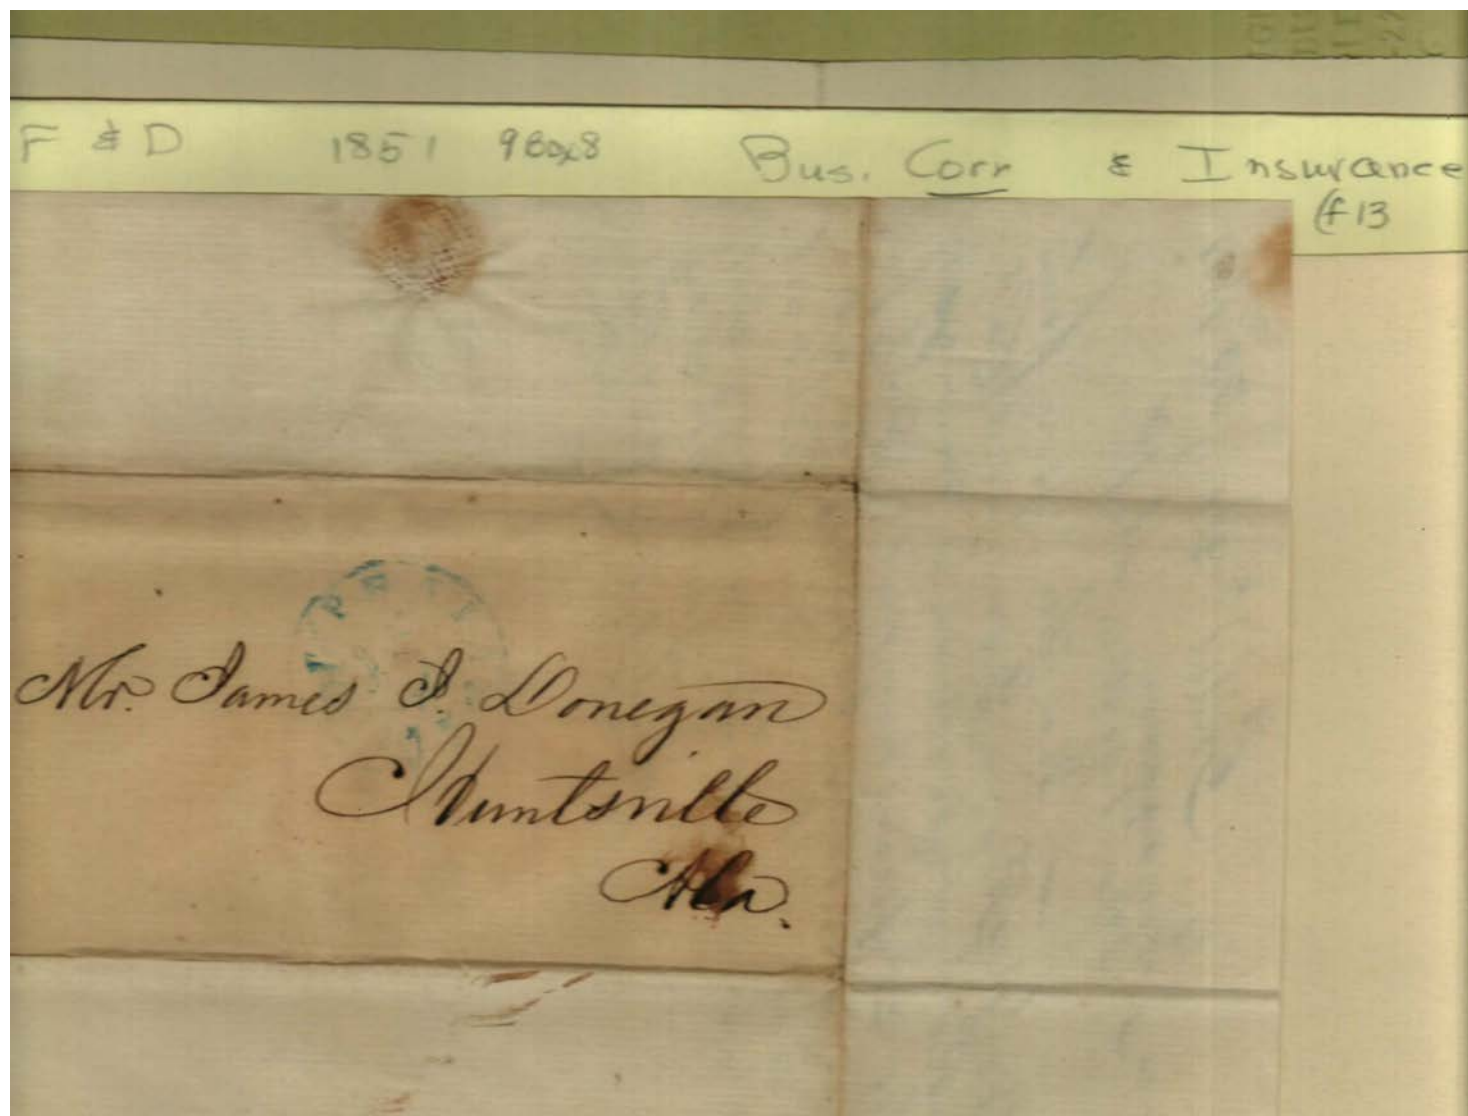 F & D 1851 9 Box 8 Bus. Corr & Insurance
(f 13
Mr. James J. Donegan
Huntsville
Ala.